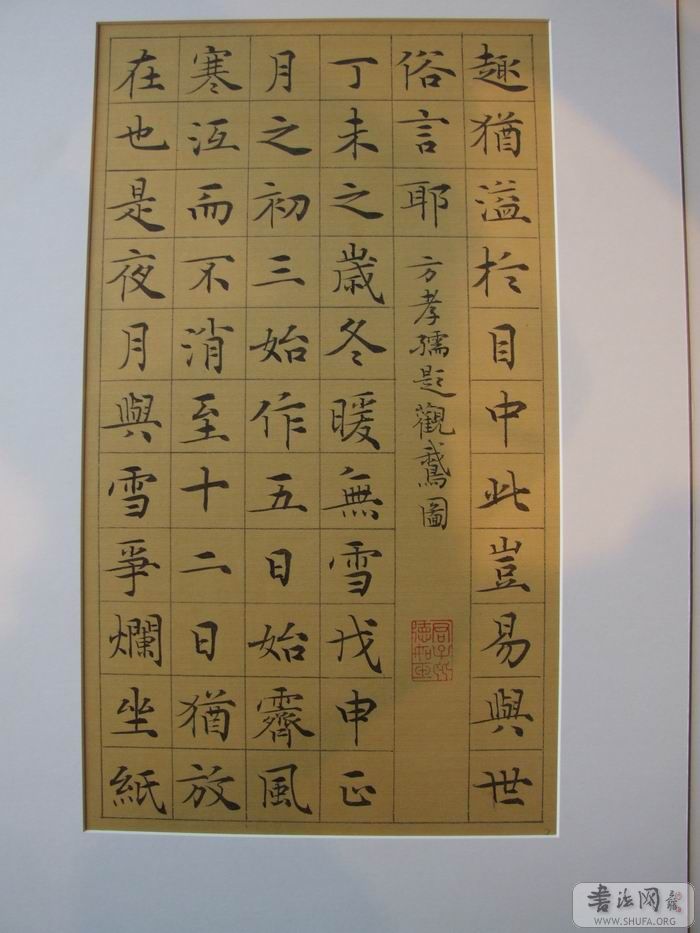 趣猶溢於目中此豈易與世
俗言耶 方孝孺題觀鵝圖
丁未之歲冬暖無雪戊申正
月之初三始作五日始霽風
寒沍而不消至十二日猶放
在也是夜月與雪爭爛坐紙
书法网
WWW.SHUFA.ORG